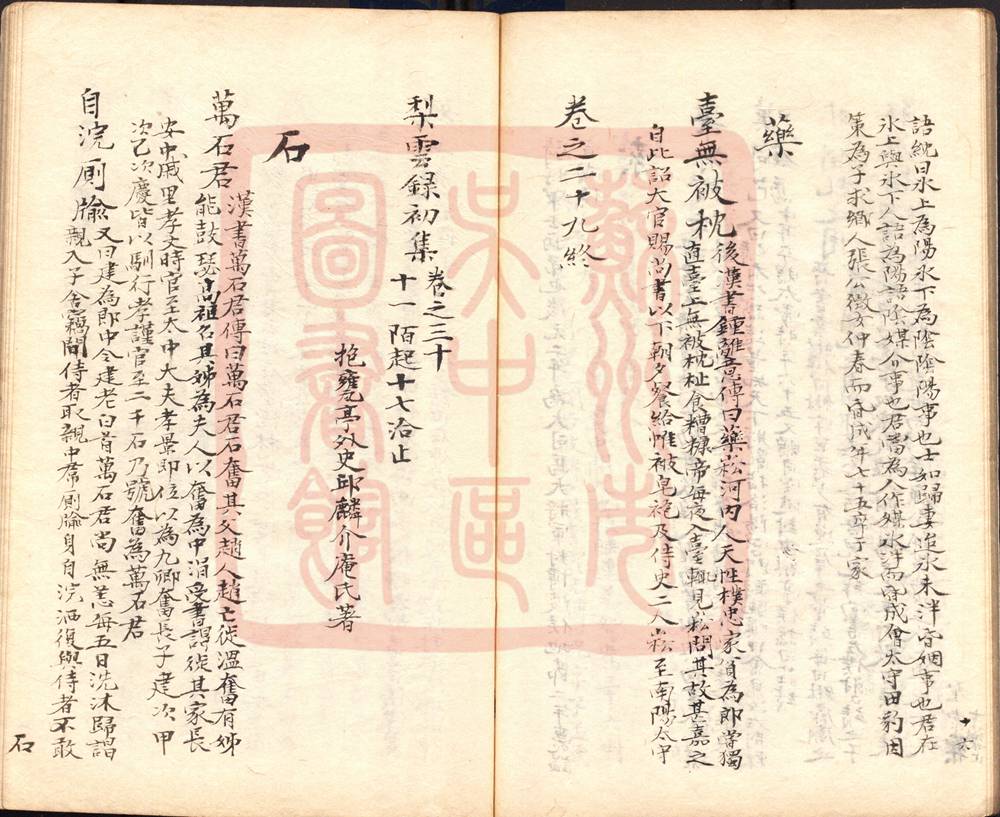 語紞曰冰上為陽冰下為陰陰陽事也士如歸妻迨冰未泮昏姻事也君在
冰上與冰下人語為陽語陰媒介事也君當為人作媒冰泮而昏成會太守田豹因
策為子求鄉人張公徵女仲春而昏成年七十五卒于家
藥
臺無被枕 後漢書鍾離意傳曰藥崧河內人天性樸忠家貧為郎嘗獨
直臺上無被枕杫食糟糠帝每夜入臺輒見崧問其故甚嘉之
自此詔大官賜尚書以下朝夕餐給帷被皂袍及侍史二人崧至南陽太守
卷之二十九終
十六
梨雲錄初集 卷之三十
十一陌起十七洽止
抱甕亭外史邱麟介庵氏著
石
萬石君 漢書萬石君傳曰萬石君石奮其父趙人趙亡徙溫奮有姊
能鼓瑟高祖召其姊為夫人以奮為中涓受書謁徙其家長
安中戚里孝文時官至太中大夫孝景即位以為九卿奮長子建次甲
次乙次慶皆以馴行孝謹官至二千石乃號奮為萬石君
自浣厠牏 又曰建為郎中令建老白首萬石君尚無恙每五日洗沐歸謁
親入子舍竊問侍者取親中帬厠牏身自浣洒復與侍者不敢
石
蘇州市
吳中區
圖書館